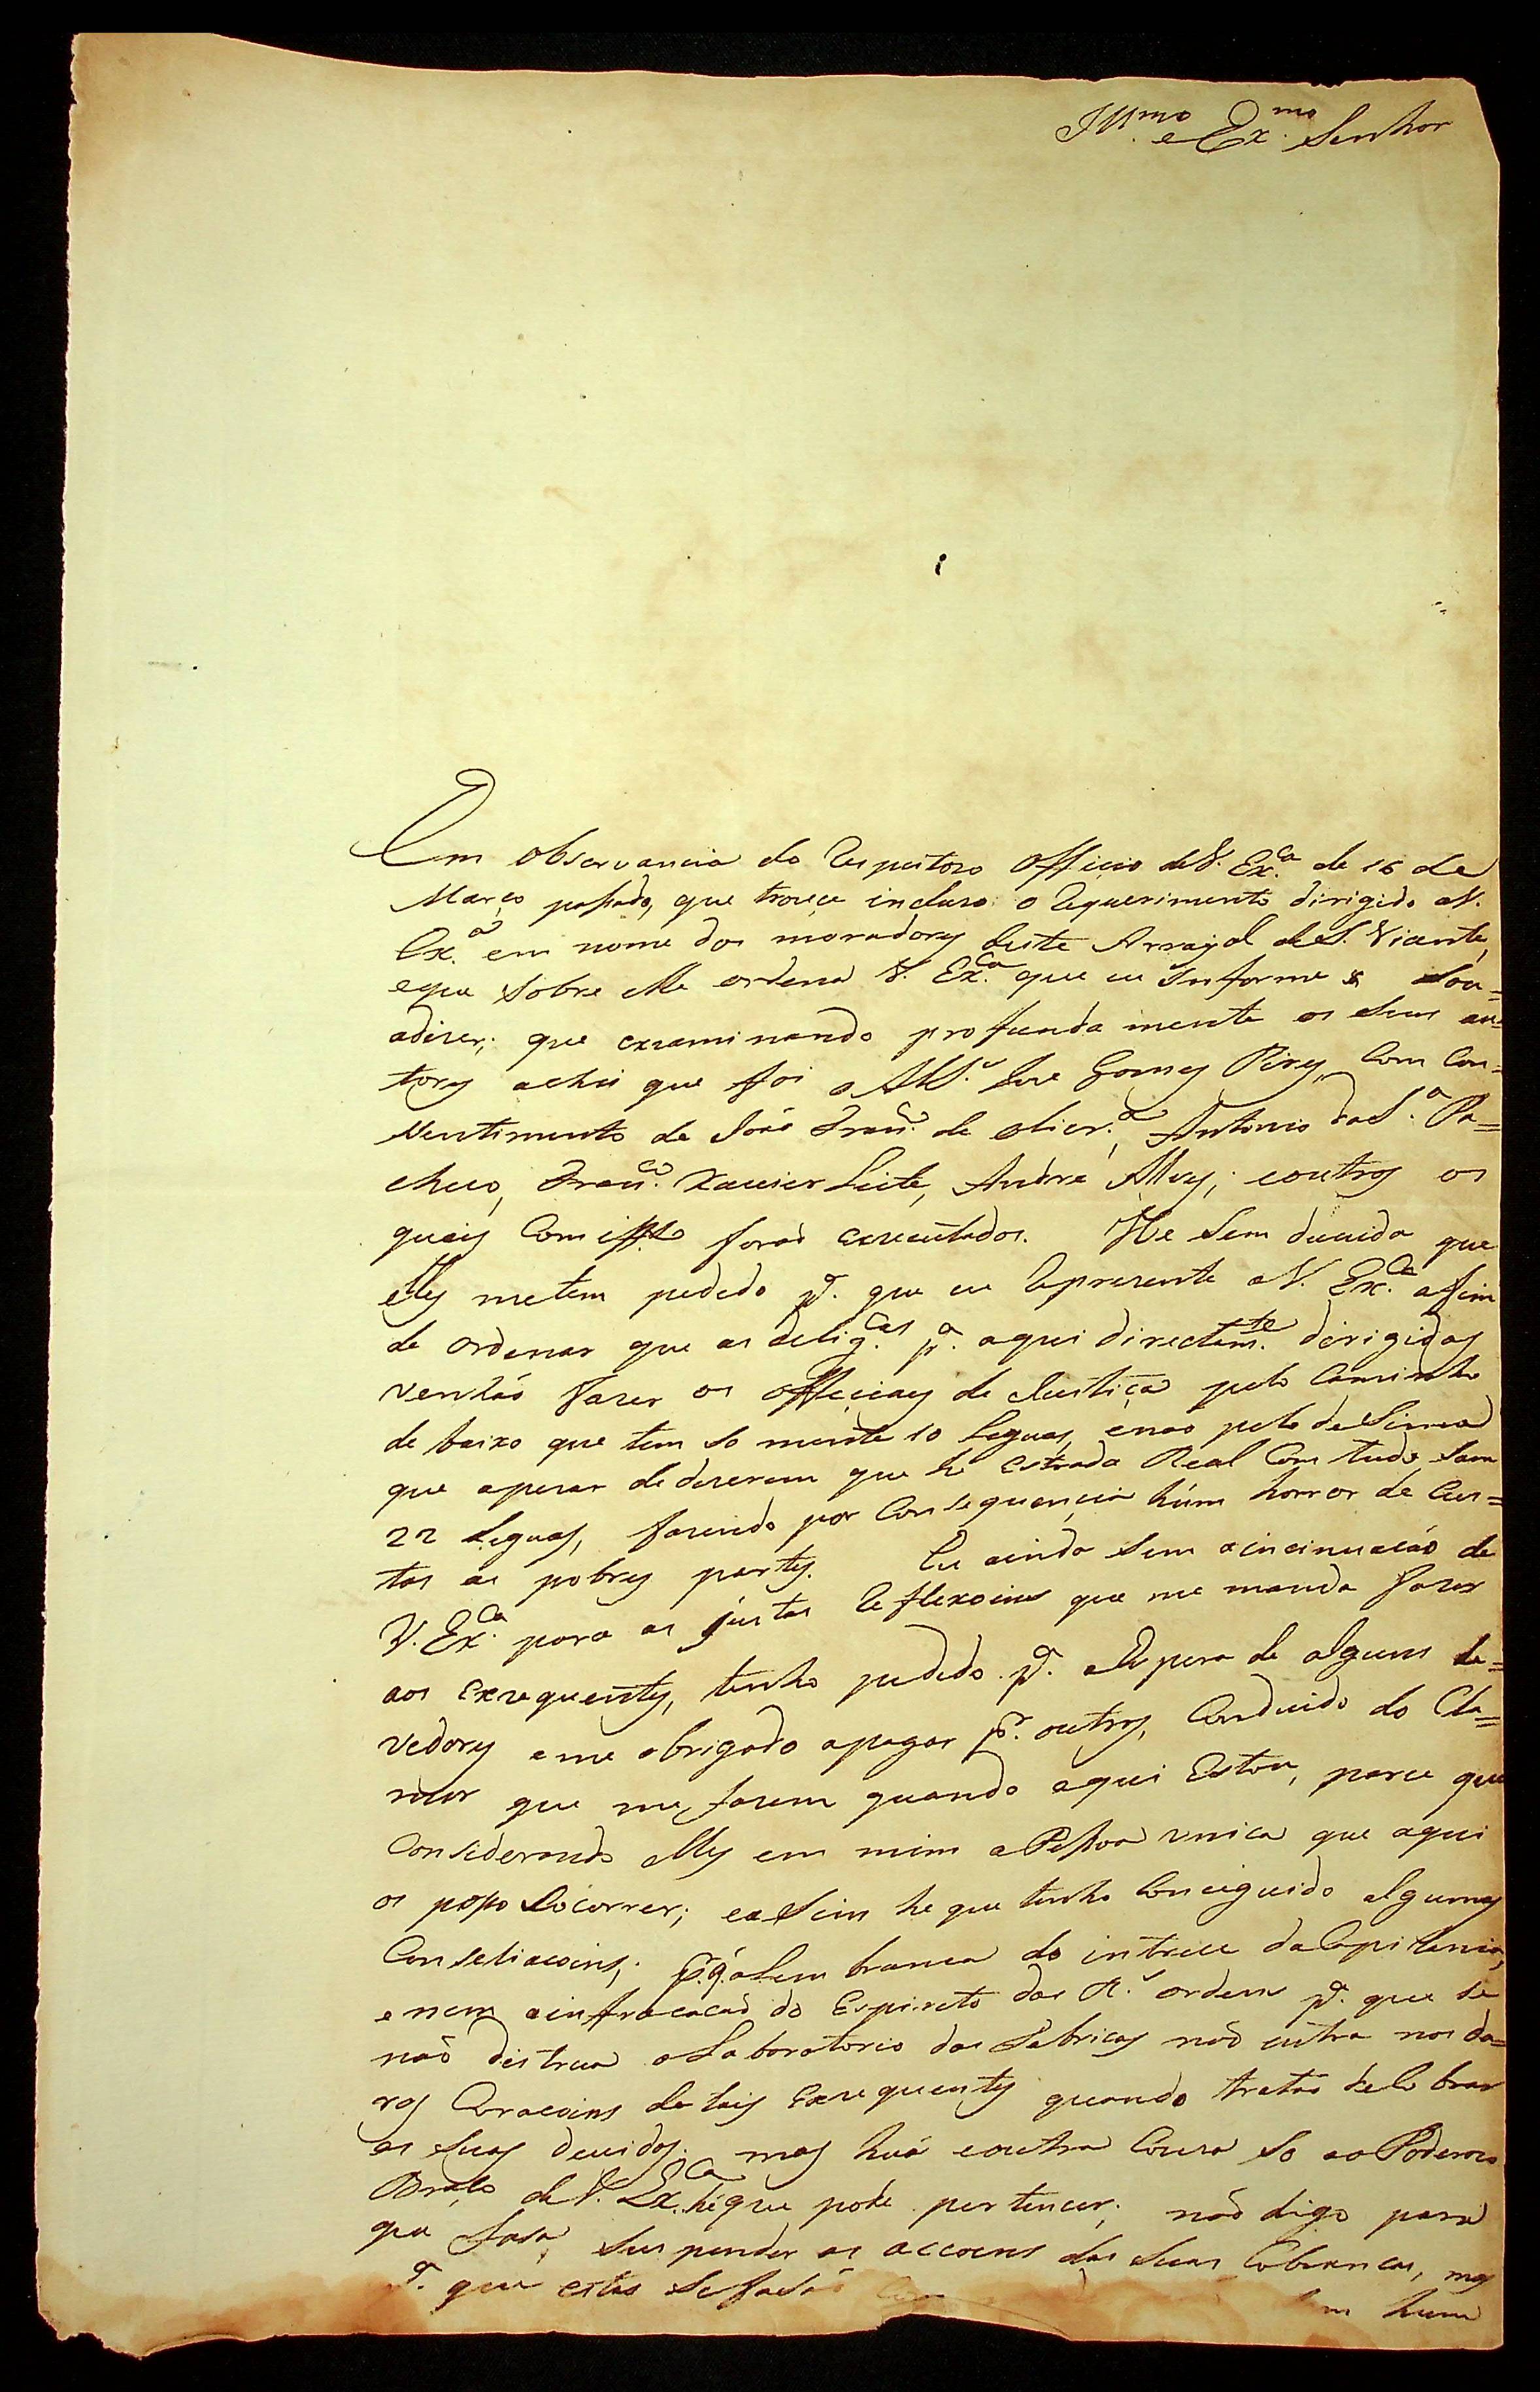 Ill.mo e Ex.mo Senhor
Em observancia do respeitozo Officio de V. Ex.ca de 16 de
Março passado, que trouce incluzo o requerimento dirigido a V.
Ex.ca em nome dos moradores deste Arrayal de S. Vicente,
e que sobre elle ordena V. Ex.ca que eu informe Sou=
a dizer; que examinando profunda mente os seus au=
tores achei que foi o Alf.s Joze Gomes Pires, com con=
sentimento de João Fran.co de Oliv.ra, Antonio da S.a Pa=
checo, Fran.co Xavier Leite, André Alves, e outros os
quais com effto forão executados. He sem duvida que
elles me tem pedido p.a que eu reprezente a V. Ex.ca afim
de ordenar que as delig.cas p.a aqui directam.te dirigidas
venhão fazer os Officiaes de Justiça pelo Caminho
de baixo que tem so mente 10 Leguas, e nao pelo de Sima
que apezar de dizerem que he estrada Real Com tudo sam
22 Leguas, fazendo por Consequencia húm horror de Cus=
tas as pobres partes. Eu ainda sem a incinuação de
V. Ex.ca para as justas reflexoins que me manda fazer
aos Exzequentes, tenho pedido p.a espera de alguns de=
vedores e me obrigado a pagar p.r outros, Conduido do Cla=
mor que me fazem quando aqui Estou, parce que
Considerando elles em mim a Pessoa unica que aqui
os posso Socorrer; e asim he que tenho Conciguido algumas
Conseliacoins; p.r q. a Lembranca do intrece da Capitania,
e nem a infracacão do Espireto das R.s ordens p.a que se
naõ distrua o Laboratorio das Fabricas naõ entra nos du=
ros Coracoins de tais Exzequentes quando tratão de Cobrar
as suas devidas. mas huá e outra Couza so ao Poderozo
Braço de V. Ex.ca he que pode pertencer; naõ digo para
que fasa suspender as accoens das suas Cobrancas, mas
p.a que estas se fasão
hum